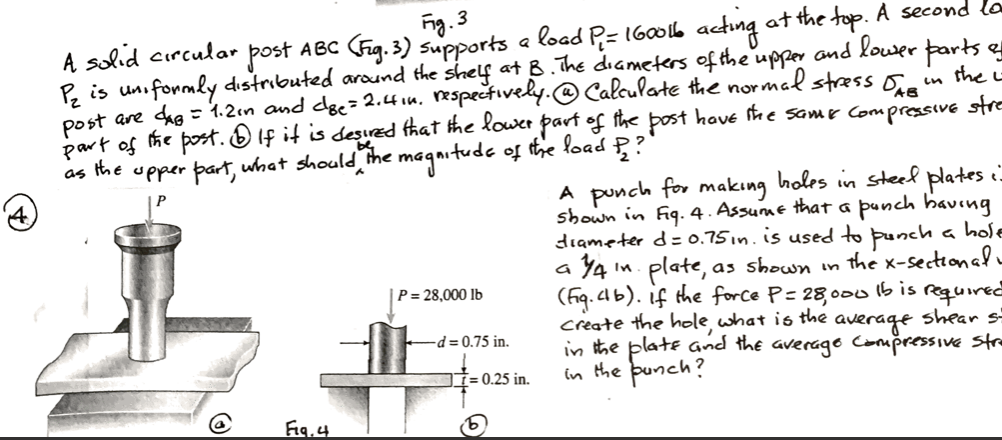 Fig. 3
A solid circular post ABC (Fig. 3) supports a load P₁ = 1600 lb acting at the top. A second
P₂ is uniformly distributed around the shelf at B. The diameters of the upper and lower parts
post are dAB = 1.2 in and dBC = 2.4 in. respectively. ⓐ Calculate the normal stress σAB in the
part of the post. ⓑ If it is desired that the lower part of the post have the same compressive
as the upper part, what should be the magnitude of the load P₂?
④
P
A punch for making holes in steel plates
shown in Fig. 4. Assume that a punch having
diameter d = 0.75 in. is used to punch a hole
a 1/4 in. plate, as shown in the x-sectional
(Fig. 4b). If the force P = 28,000 lb is required
create the hole, what is the average shear
in the plate and the average compressive
in the punch?
P = 28,000 lb
d = 0.75 in.
t = 0.25 in.
ⓐ
Fig. 4
ⓑ